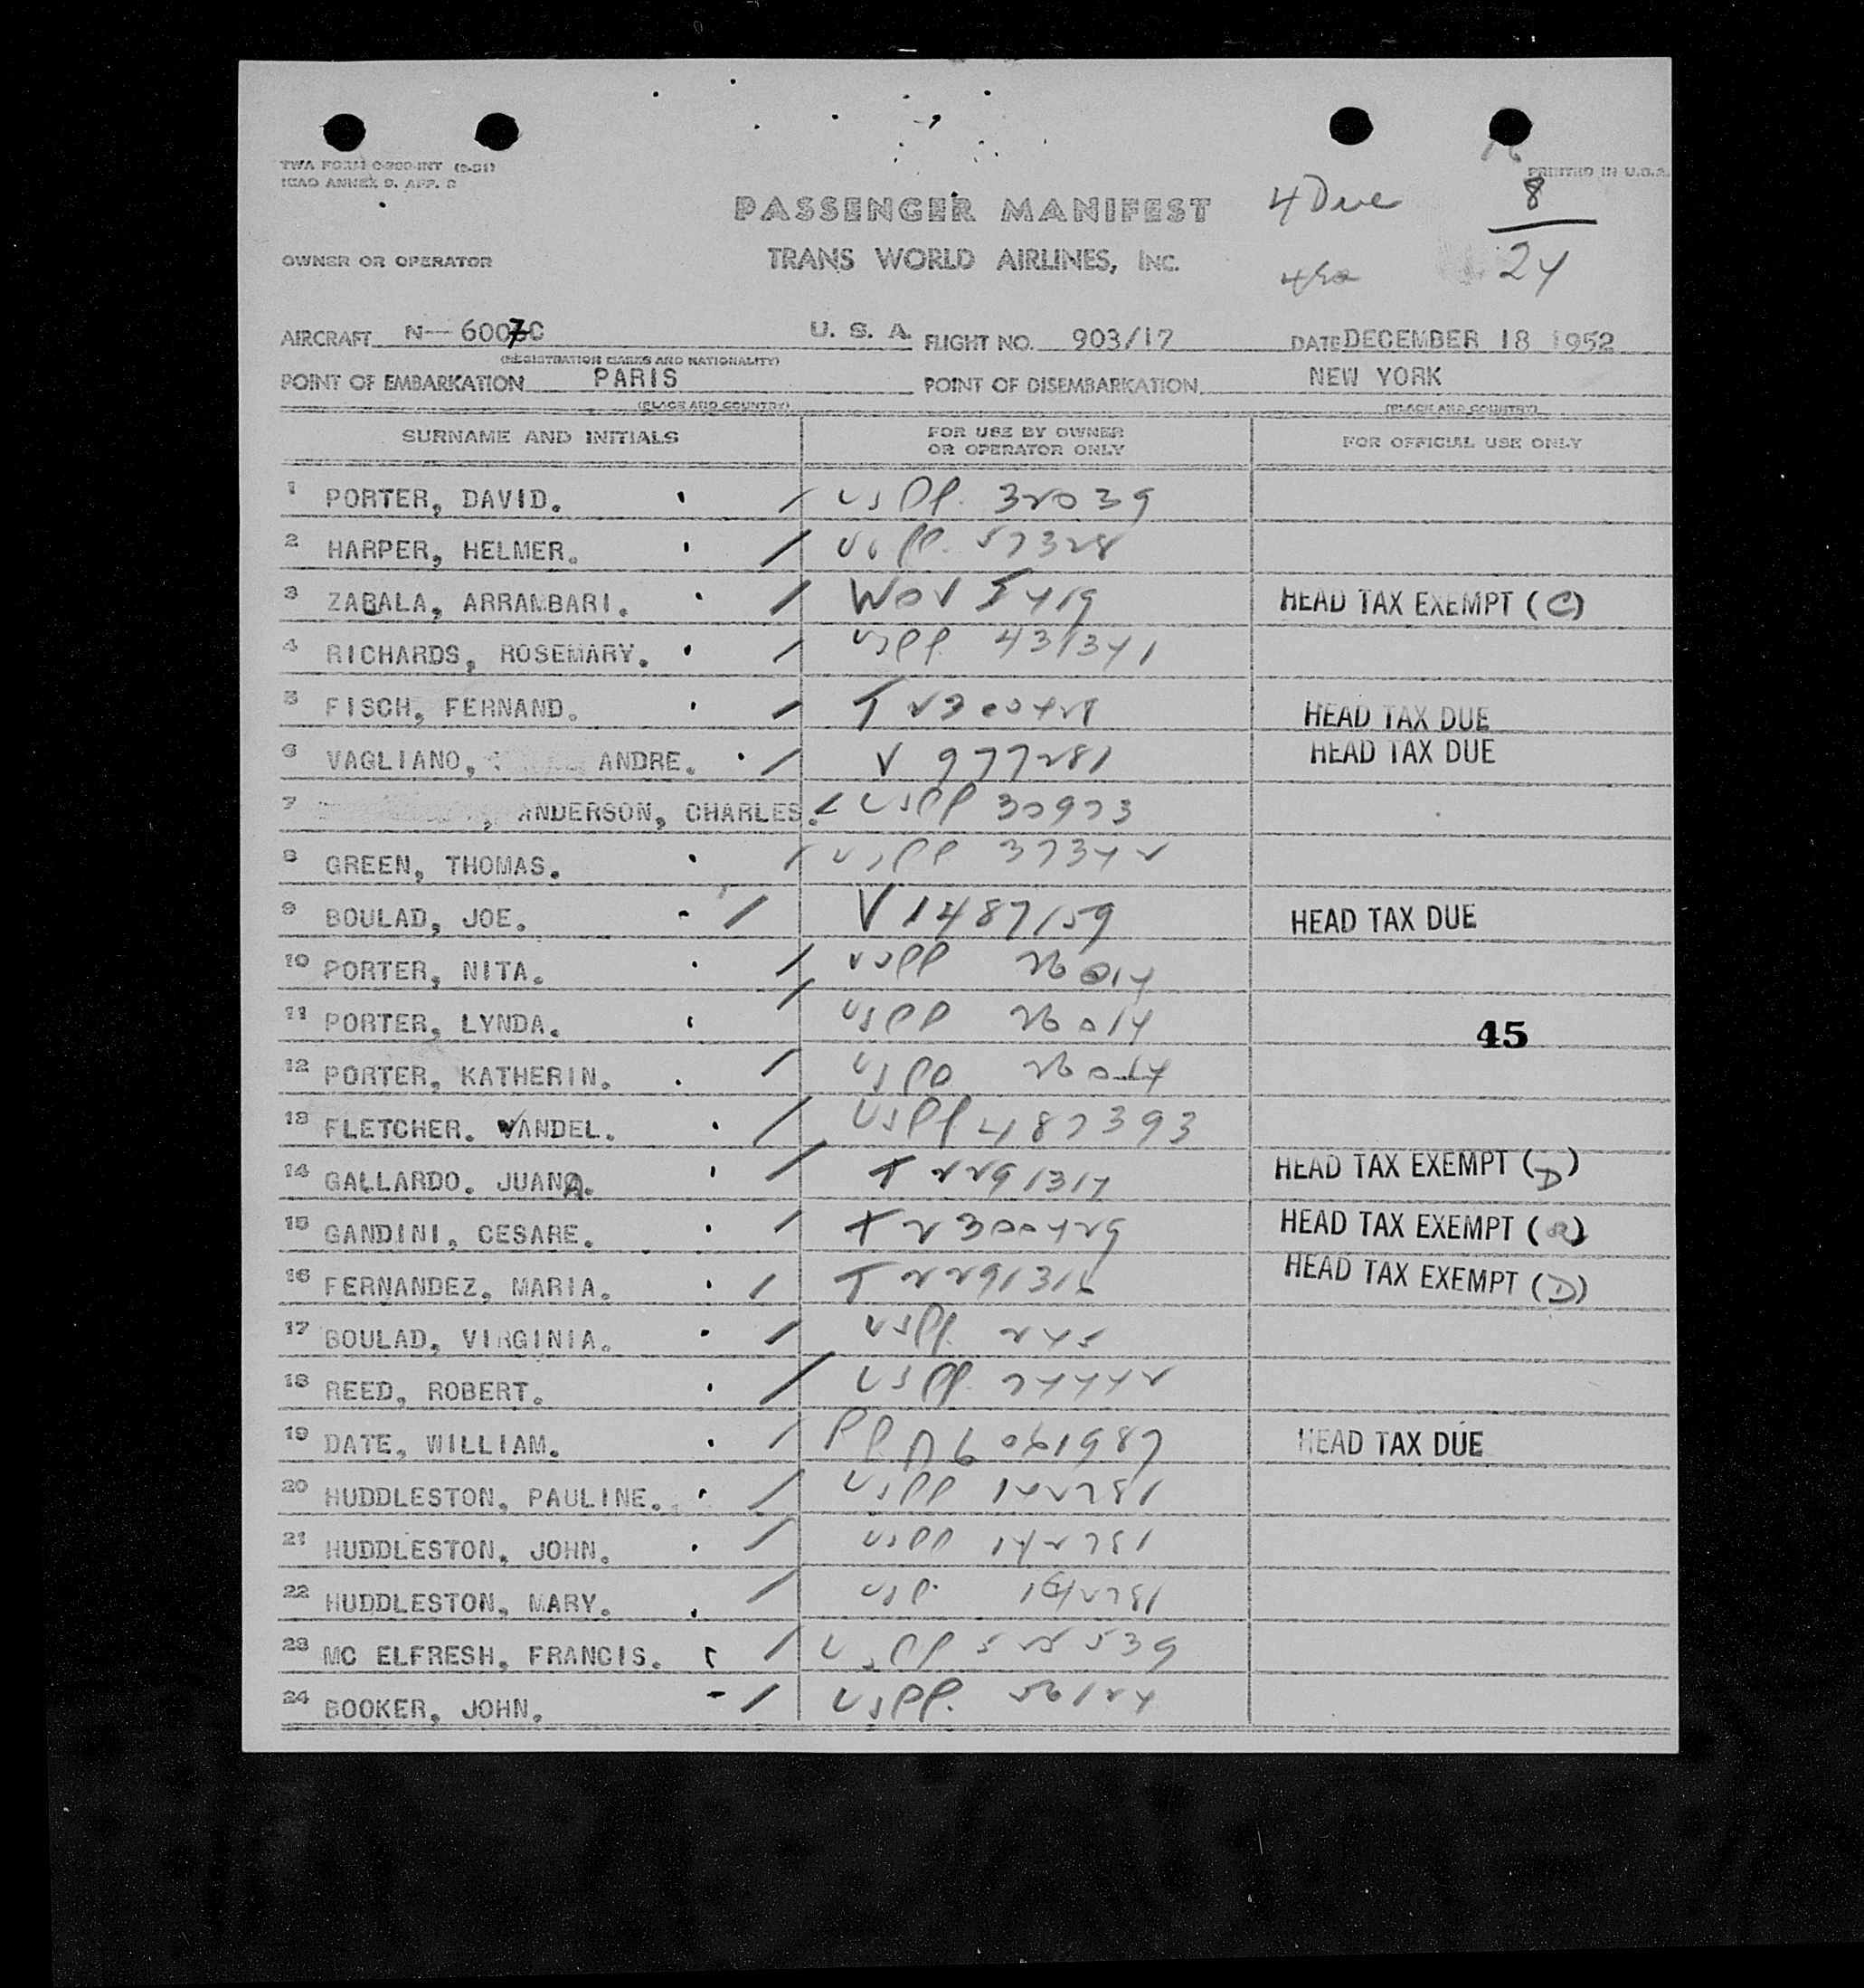 TWA FORM INT
ICAO ANNEX 9. APP.
PRINTED IN U.S.A.
8
4 Due
PASSENGER MANIFEST
OWNER OR OPERATOR
TRANS WORLD AIRLINES, INC.
24
AIRCRAFT N— 6007C U. S. A. FLIGHT NO. 903/17 DATE DECEMBER 18 1952
(REGISTRATION MARKS AND NATIONALITY)
POINT OF EMBARKATION PARIS POINT OF DISEMBARKATION NEW YORK
(PLACE AND COUNTRY) (PLACE AND COUNTRY)
SURNAME AND INITIALS FOR USE BY OWNER OR OPERATOR ONLY FOR OFFICIAL USE ONLY
1 PORTER, DAVID. uspp. 32039
2 HARPER, HELMER. uspp. 57328
3 ZABALA, ARRAMBARI. HEAD TAX EXEMPT (C)
4 RICHARDS, ROSEMARY. uspp 431341
5 FISCH, FERNAND. T 2300428 HEAD TAX DUE
6 VAGLIANO, ANDRE. V 977281 HEAD TAX DUE
7 ANDERSON, CHARLES. uspp 30973
8 GREEN, THOMAS. uspp 37342
9 BOULAD, JOE. V 1487159 HEAD TAX DUE
10 PORTER, NITA. uspp 26014
11 PORTER, LYNDA. uspp 26014
45
12 PORTER, KATHERIN. uspp 26014
13 FLETCHER. VANDEL. uspp 487393
14 GALLARDO. JUANA. T 2291317 HEAD TAX EXEMPT (D)
15 GANDINI, CESARE. T 2300429 HEAD TAX EXEMPT
16 FERNANDEZ, MARIA. HEAD TAX EXEMPT (D)
17 BOULAD, VIRGINIA. uspp. 245
18 REED, ROBERT. uspp. 74442
19 DATE, WILLIAM. HEAD TAX DUE
20 HUDDLESTON, PAULINE. uspp 142781
21 HUDDLESTON, JOHN. uspp 142781
22 HUDDLESTON, MARY. usp. 142781
23 MC ELFRESH, FRANCIS. uspp 522539
24 BOOKER, JOHN. uspp. 56124